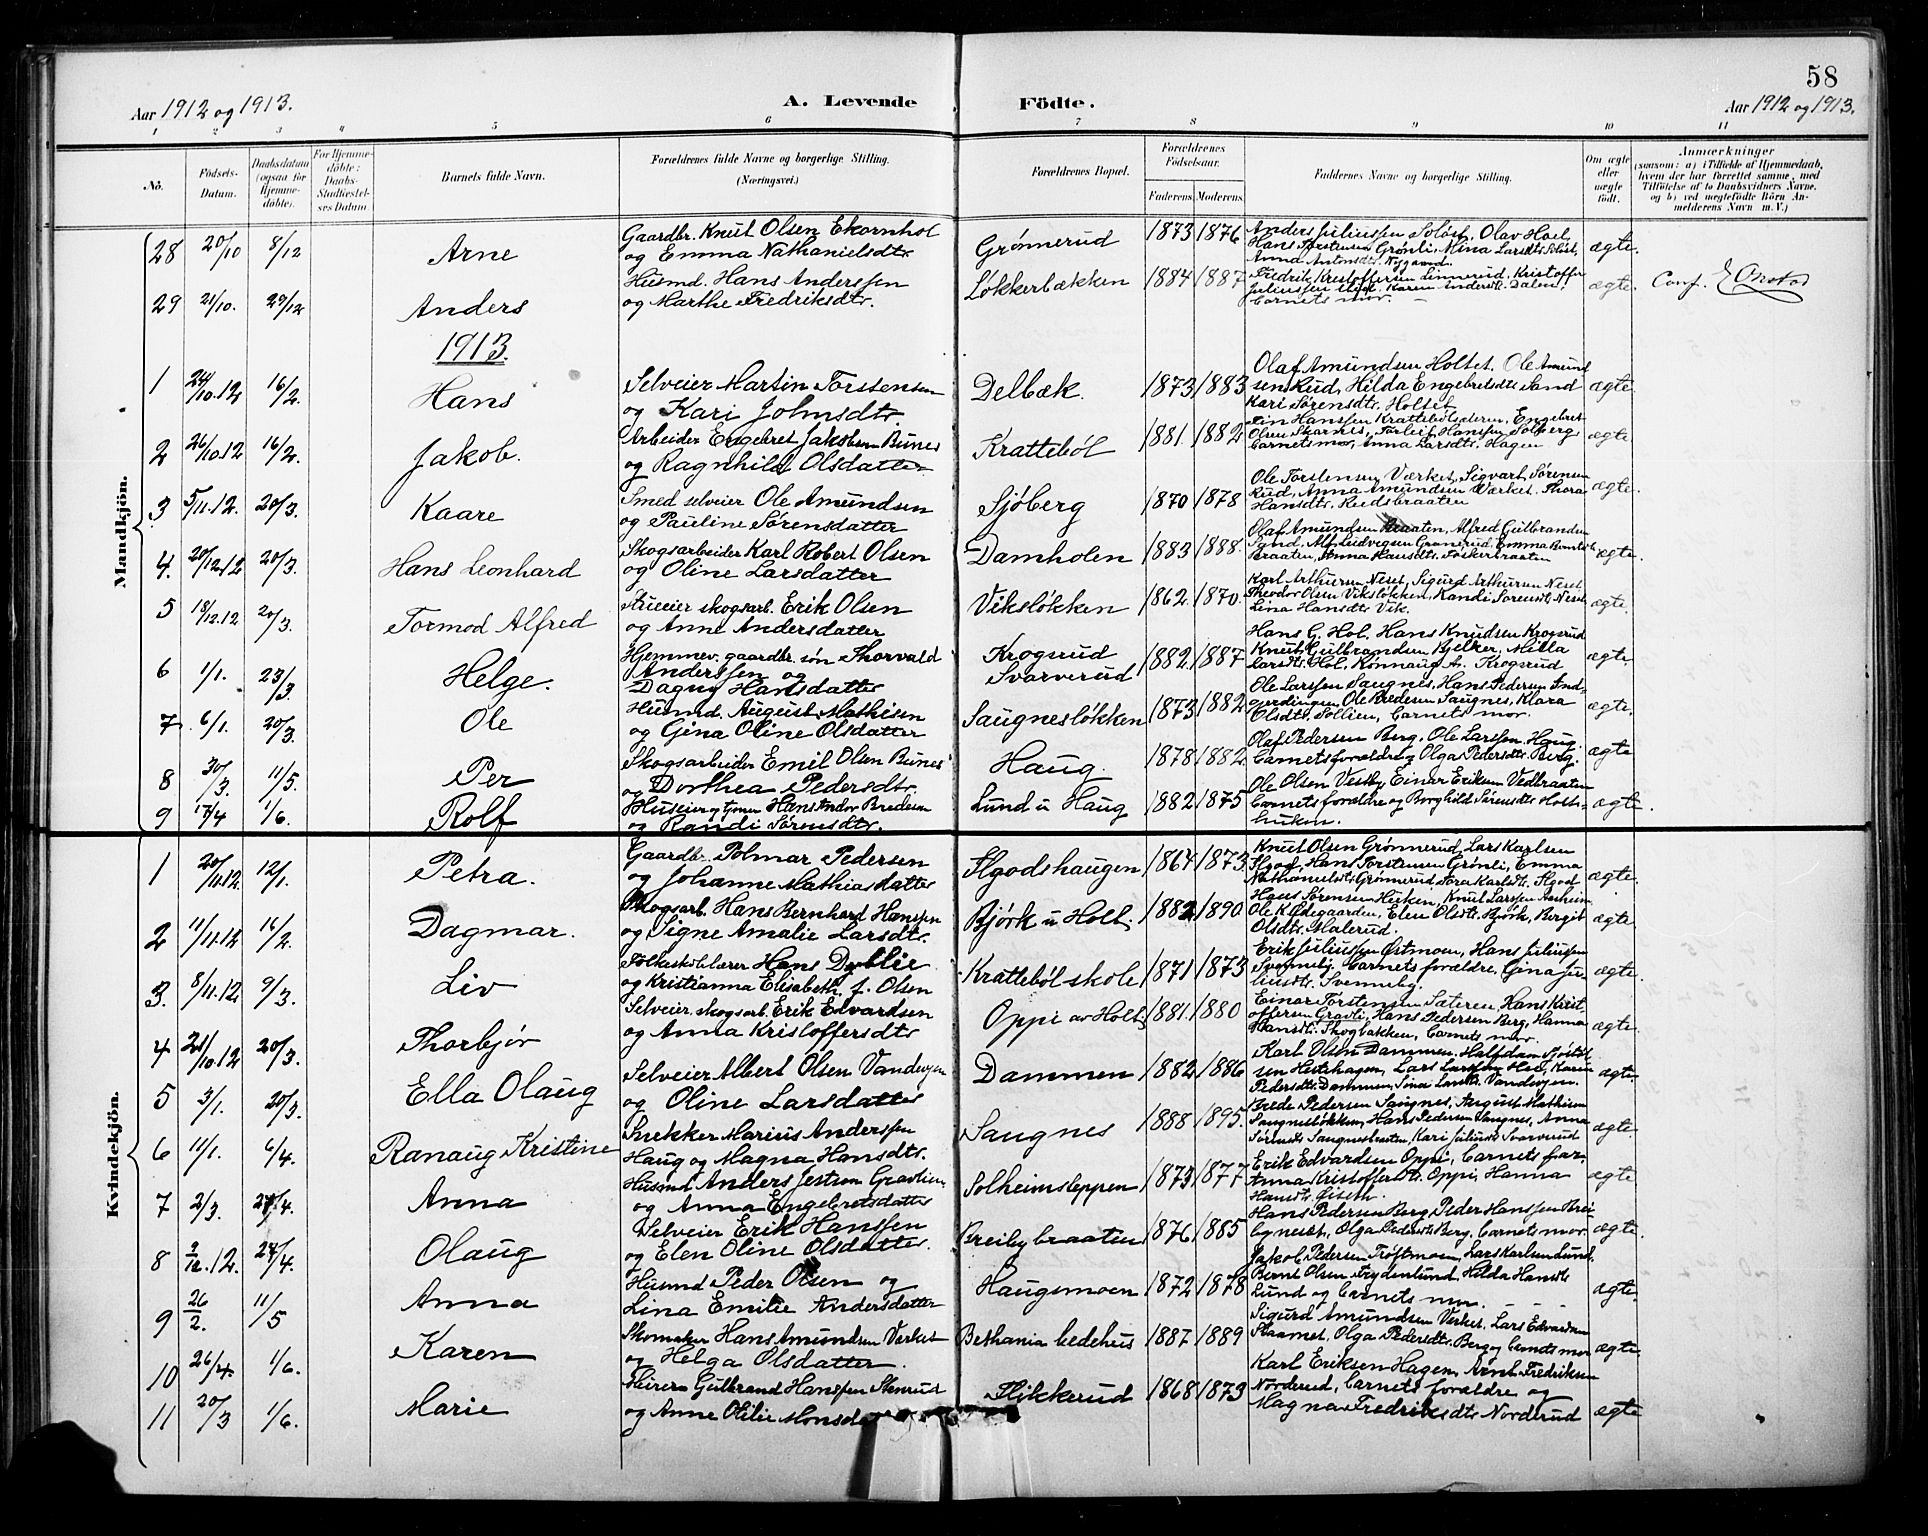 58
Aar 1912 og 1913.
A. Levende Födte.
Aar 1912 og 1913.
1 2 3 4 5 6 7 8 9 10 11
No.
Födsels-Datum.
Daabsdatum (ogsaa for Hjemmedöbte).
For Hjemmedöbte: Daabs-Stadfæstelses Datum
Barnets fulde Navn.
Forældrenes fulde Navne og borgerlige Stilling. (Næringsvei.)
Forældrenes Bopæl.
Forældrenes Födselsaar.
Faderens Moderens
Faddernes Navne og borgerlige Stilling.
Om ægte eller uægte födt.
Anmærkninger
(saasom: a) i Tilfælde af Hjemmedaab, hvem der har forrettet samme, med Tilföielse af to Daabsvidners Navne, og b) ved uegtefödte Börn Anmelderens Navn m. V.)
Mandkjön.
28 20/10 8/12 Arne Gaardbr. Knut Olsen Ekornhol og Emma Nathanielsdtr. Grønnerud 1873 1876 Anders Juliussen Soløst, Olav Hoel, Hans Torstensen Grønli, Mina Larsdtr. Anna Antonsdtr. Nygaard. ægte.
29 21/10. 29/12 Anders Husmd. Hans Anderssen og Marthe Fredriksdtr. Løkkerbækken 1884 1887 Fredrik Kristoffersen Linnerud, Kristoffer Juliussen Karen Andersdt. Dalen, barnets mor. ægte. Conf.
1913.
1 24/10.12 16/2. Hans Selveier Martin Torstensen og Kari Johnsdtr. Delbæk. 1873 1883 Olaf Amundsen Holtet, Ole Amundsen Rud, Hilda Engebretsdtr. Sand Kari Sørensdtr. Holtet ægte.
2 26/10.12 16/2. Jakob. Arbeider Engebret Jakobsen Bunes og Ragnhild Olsdatter Kratteböl 1881 1882 Hanssen Kratteböl Engebret Olsen Skarnes, Torleif Hanssen Solberg barnets mor, Anna Larsdtr. Hagen ægte.
3 5/11.12. 20/3. Kaare Smed selveier Ole Amundsen og Pauline Sørensdatter Sjøberg 1870 1878 Ole Torstensen Værket, Sigvart Sørensen Rud, Anna Amundsen Værket, Thora Hansdtr. Reidsbraaten ægte.
4. 20/12.12 20/3. Hans Leonhard Skogsarbeider Karl Robert Olsen og Oline Larsdatter Damholen 1883 1888. Olaf Amundsen Braaten, Alfred Gulbrandsen Sand, Alf Ludvigsen Emma Braaten, Anna Hansdtr. ægte.
5 18/12.12 20/3. Tormod Alfred skogsarb. Erik Olsen og Anne Andersdatter Viksløkken 1862 1870. Karl Arthursen Neset, Sigurd Arthursen Neset Theodor Olsen Viksløkken, Randi Sørensdtr. Neset, Lina Hansdtr. Vik. ægte.
6 1/1. 23/3. Helge. Hjemmev. gaardbr. søn Thorvald Anderssen og Dagny Hansdatter Krogsrud Svarverud 1882 1887 Hans G. Hol, Hans Knudsen Krogsrud Knut Gulbrandsen Bjelker, Milla Larsdtr. Hol, Rønnaug A. Krogsrud ægte.
7 6/1. 20/3. Ole Husmd. August Mathisen og Gina Oline Olsdatter Saugnesløkken 1873 1882 Ole Larssen Saugnes, Hans Pedersen Ole Bredesen Saugnes, Klara Olsdtr. Sollien, barnets mor. ægte.
8 30/3. 11/5. Per Skogsarbeider Emil Olsen Bunes og Dorthea Pedersdtr. Haug. 1878 1882 Olaf Pedersen Berg, Ole Larssen Haug. barnets forældre og Olga Pedersdtr. Berg. ægte
9 17/4 1/6. Rolf Hans Andor Bredesen og Randi Sørensdtr. Lund u Haug 1882 1875 Ole Olsen Vestby, Einar Eriksen Vedbraaten barnets forældre og Borghild Sørensdtr. ægte.
Kvindekjön.
1 20/11.12. 12/1. Petra. Gaardbr. Polmar Pedersen og Johanne Mathiasdatter Flgodshaugen 1864 1873. Knut Olsen Grønnerud, Lars Karlsen Hans Torstensen Grønli, Emma Nathanielsdtr. Grønnerud, Tora Karlsdt. ægte.
2 11/11.12 16/2. Dagmar. Skogsarb. Hans Bernhard Hanssen og Signe Amalie Larsdtr. Bjørk u Holt. 1882 1890 Hans Sørensen Knut Larssen Ole K. Ødegaarden, Elen Olsdtr. Bjørk, Birgit Olsdtr. Malerud. ægte
3. 8/11.12 9/3. Liv Folkeskolelærer Hans Dyblie og Kristianna Elisabeth f. Olsen Kratteböl skole 1871 1873 Erik Juliussen Østmoen, Hans Juliussen Svenneby, barnets forældre, Gina Juliusdt. Svenneby. ægte.
4 21/10.12 20/3. Thorbjør Selveier, skogsarb. Erik Edvardsen og Anna Kristoffersdtr. Oppi av Holt 1881. 1880 Einar Torstensen Sæteren, Hans Kristoffersen Gravli, Hans Pedersen Berg, Hanna Hansdtr. Skogbakken, barnets mor. ægte.
5 3/1. 20/3. Ella Olaug Selveier Albert Olsen Vandvegen og Oline Larsdatter Dammen 1882 1886 Karl Olsen Dammen, Halfdan Lars Larssen Karen Pedersdtr. Dammen, Sina Larsdtr. Vandvegen. ægte.
6 11/1. 6/4. Ranaug Kristine Snekker Marius Anderssen Haug og Magna Hansdtr. Saugnes 1888 1895. Brede Pedersen Saugnes, August Mathisen Saugnesløkken, Hans Pedersen Saugnes, Anna Sørensdtr. Saugnesbraaten, Kari Juliusdt. Svarverud ægte.
7 2/3. 27/4. Anna Husmd. Anders Jensen Gravlien og Anna Engebretsdatter Solheimsleppen 1873 1877 Erik Edvardsen Oppi, barnets far. Anna Kristoffersdtr. Oppi, Hanna Hansdtr. Øiseth. ægte
8 9/12.12. 27/4. Olaug Selveier Erik Hanssen og Elen Oline Olsdatter. Breibybraaten 1876 1885 Hans Pedersen Berg, Peder Hanssen Olga Pedersdtr. Berg, barnets mor. ægte.
9 26/2. 11/5 Anna Husmd. Peder Olsen og Lina Emilie Andersdatter Haugsmoen 1872 1878 Jakob Pedersen Trøftmoen, Lars Karlsen Lund, Bernt Olsen Frydenlund, Hilda Hansdtr. Lund og barnets mor. ægte.
10 26/4. 1/6. Karen Skomaker Hans Amundsen Værket og Helga Olsdatter. Bethania bedehus 1887 1889 Sigurd Amundsen Verket, Lars Edvardsen Olga Pedersdtr. Berg og barnets mor ægte.
11 20/3 1/6. Marie Gulbrand Hanssen Stenrud og Anne Otilie Flikkerud 1868 1873 Karl Eriksen Hagen, Arnt Fredriksen Norderud, barnets forældre og Magna Fredriksdtr. Norderud ægte